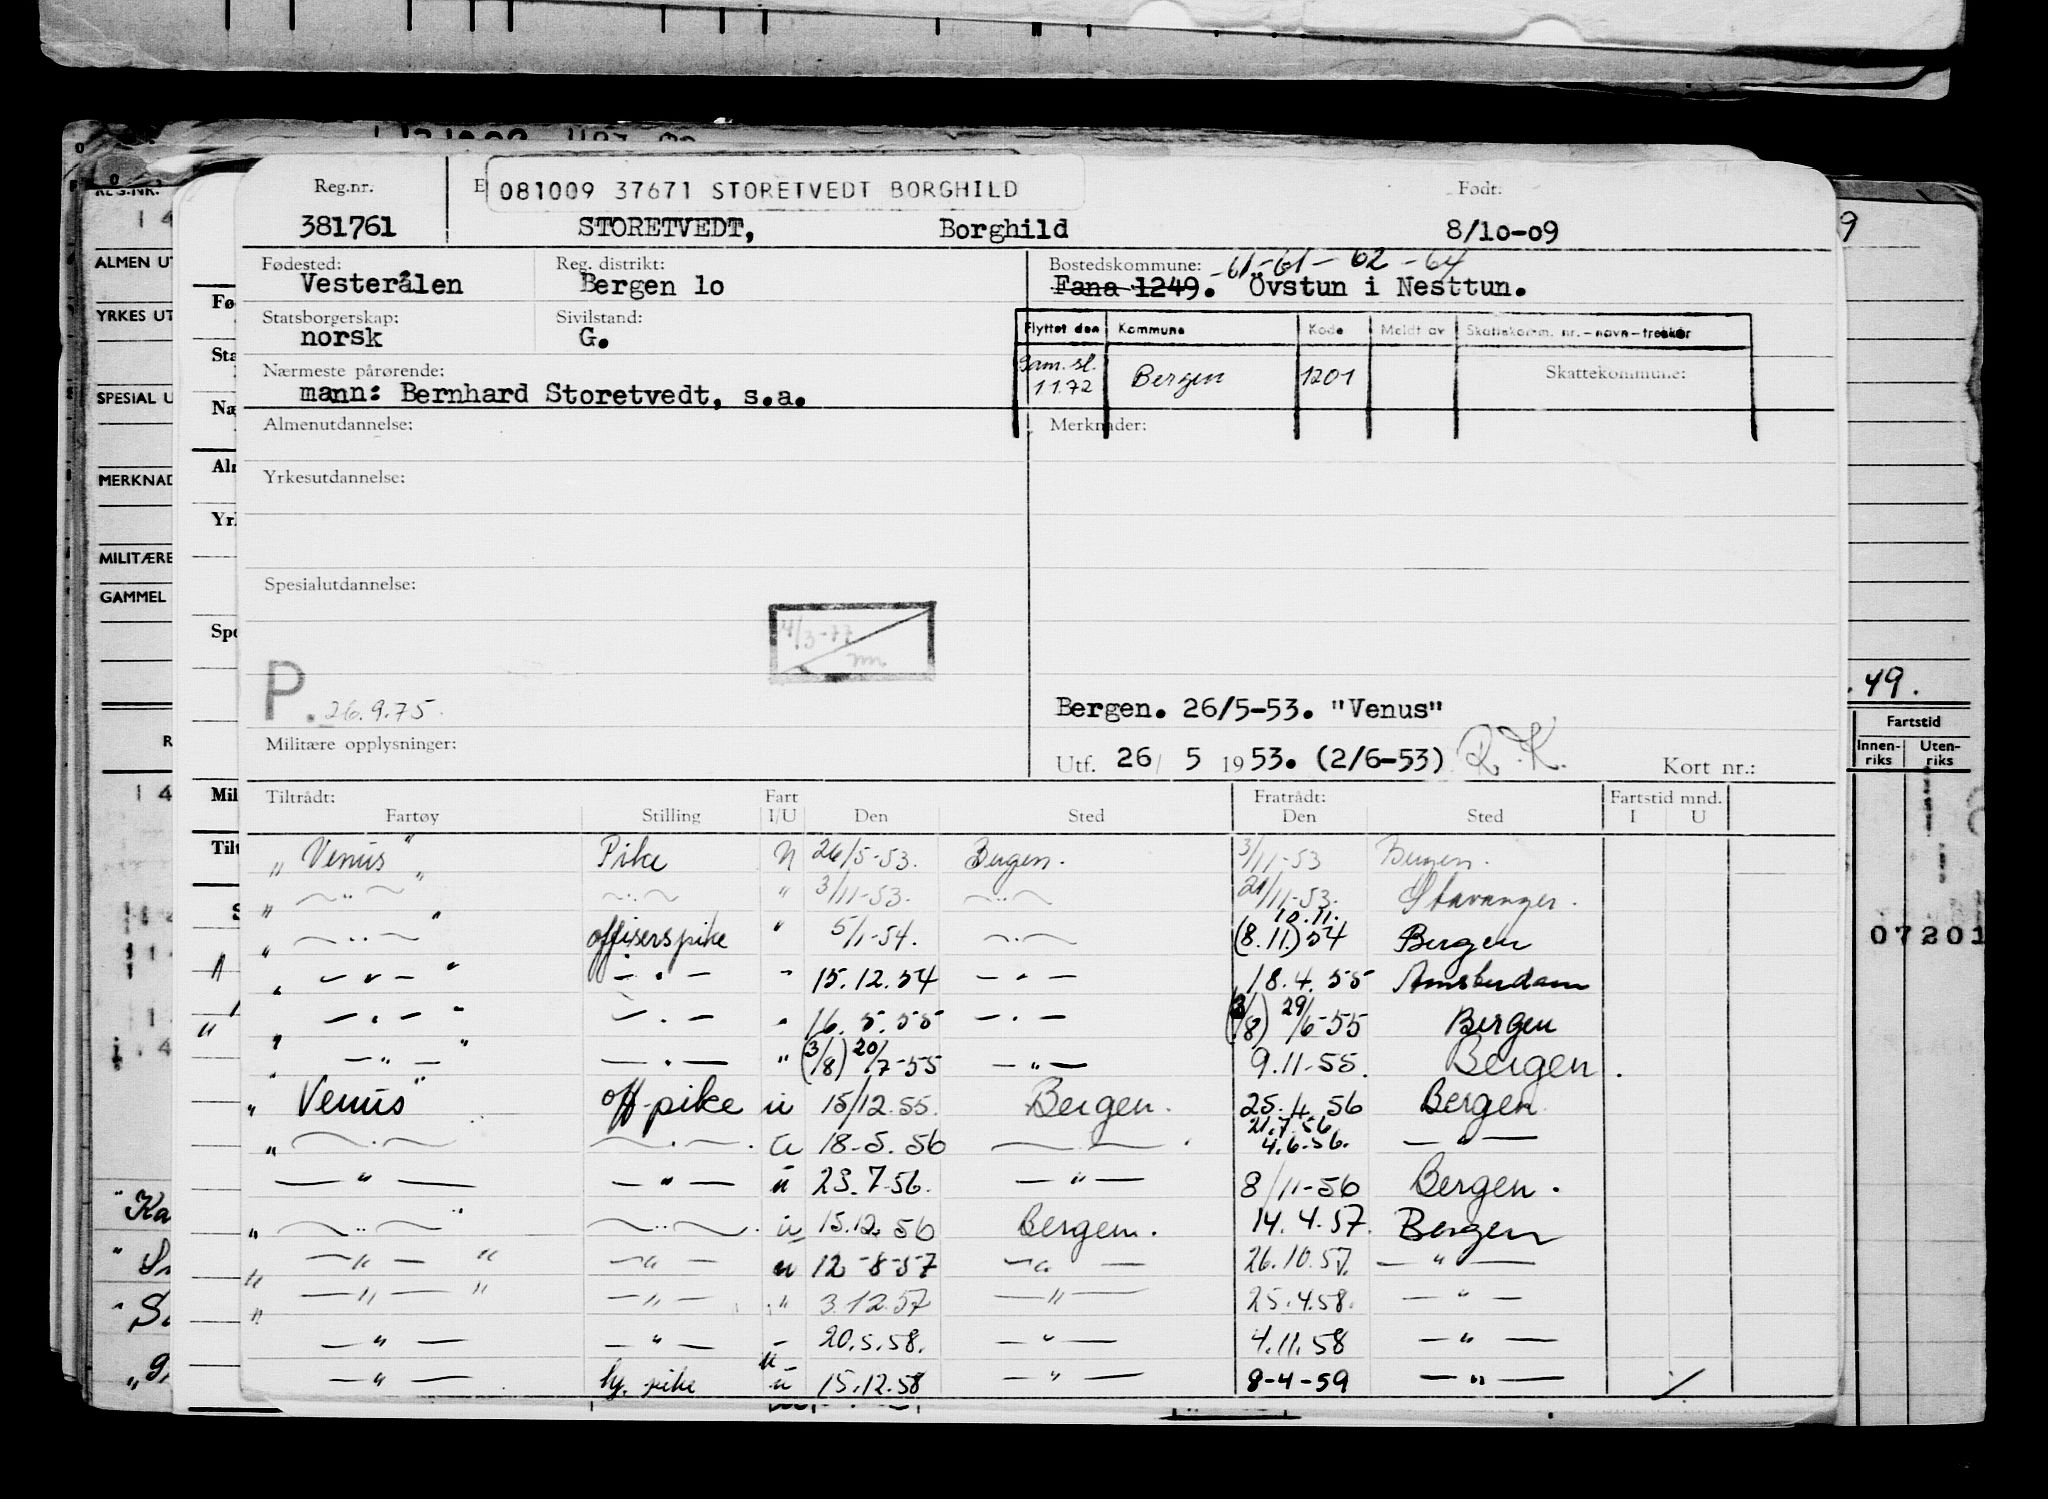 Reg.nr.
081009 37671 STORETVEDT BORGHILD
Født:
381761 STORETVEDT, Borghild 8/10-09
Fødested: Reg. distrikt: Bostedskommune: -61-61-62-64
Vesterålen Bergen 10 Fana 1249. Övstun i Nesttun.
Statsborgerskap: Sivilstand:
norsk G.
Flyttet den Kommune Kode Meldt av Skattekomm. nr.-navn-trekkår
Nærmeste pårørende:
mann: Bernhard Storetvedt, s.a.
1.1.72 Bergen 1201 Skattekommune:
Almenutdannelse: Merknader:
Yrkesutdannelse:
Spesialutdannelse:
4/3-77
P. 26.9.75.
Bergen. 26/5-53. "Venus"
Militære opplysninger:
Utf. 26/ 5 1953. (2/6-53) R.K. Kort nr.:
Tiltrådt: Fart Fratrådt: Fartstid mnd.
Fartøy Stilling I/U Den Sted Den Sted I U
" Venus " Pike 26/5-53. Bergen. 3/11-53 Bergen.
" — " — " — " — " 3/11-53. — " — 21/11-53. Stavanger.
" — " — " offiserspike " 5/1-54. — " — 10.11. (8.11.) 54 Bergen
" — " — " — " — " 15.12.54 — " — 18.4.55 Amsterdam
" — " — " — " — " 16.5.55 — " — (3/8) 29/6-55 Bergen
" — " — " — " — " (3/8) 20/7-55 — " — 9.11-55. Bergen.
" Venus " off-pike u 15/12.55. Bergen. 25.4.56 Bergen
" — " — — " — u 18-5.56 — " — 21.7.56 4.6.56. — " —
— " — — " — u 23.7.56. — " — 8/11-56 Bergen.
" — " — " — " — u 15.12.56 Bergen. 14.4.57. Bergen
" — " — " — " — u 12-8-57 — " — 26.10.57. — " —
" — " — " — " — " 3.12.57 — " — 25.4.58. — " —
— " — — " — " 20.5.58. — " — 4.11.58 — " —
— " — pike u 15.12.58 — " — 8-4-59 — " —
REG.NR.
ALMEN UT
YRKES UT
SPESIAL U
MERKNAD
MILITÆRE
GAMMEL
Fø
Sta
Næ
Alr
Yrl
Spe
Mil
Tilt
.49.
Fartstid
Innen- Uten-
riks riks
07201